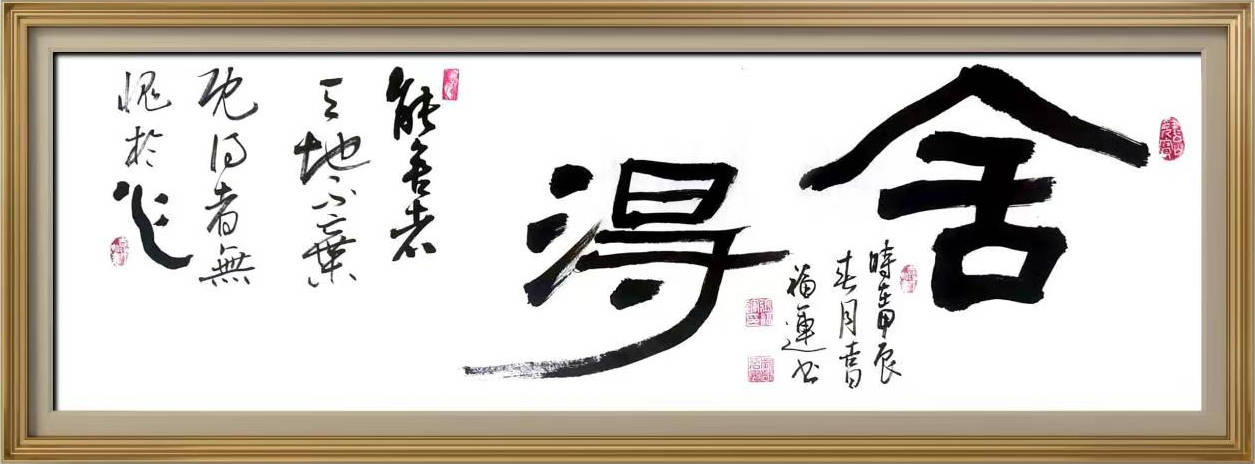 舍得
時在甲辰
春月吉日
福運书
能舍者
天地不棄
既得者無
愧於心